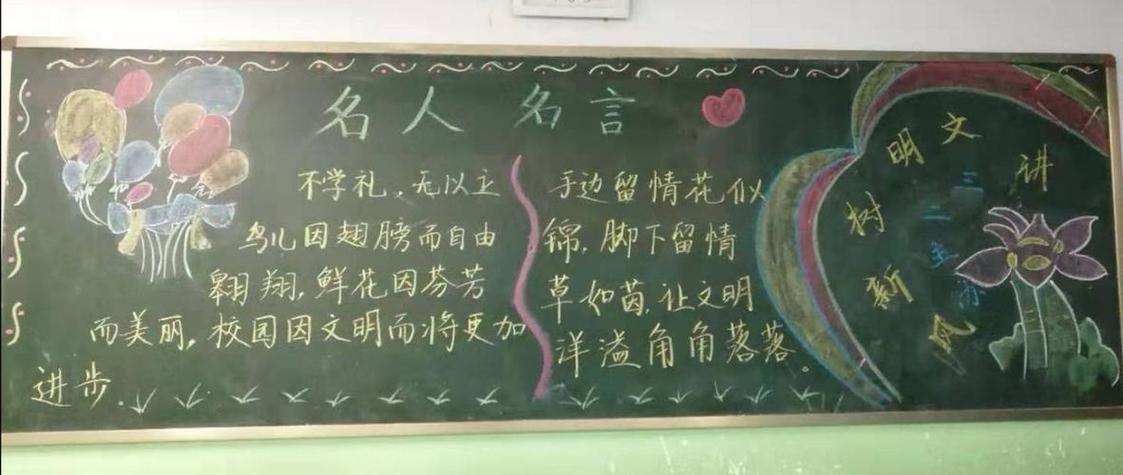 名人 名言
不学礼、无以立
鸟儿因翅膀而自由
翱翔,鲜花因芬芳
而美丽,校园因文明而将更加
进步.
手边留情花似
锦,脚下留情
草如茵,让文明
洋溢角角落落。
讲文明树新风
三二主